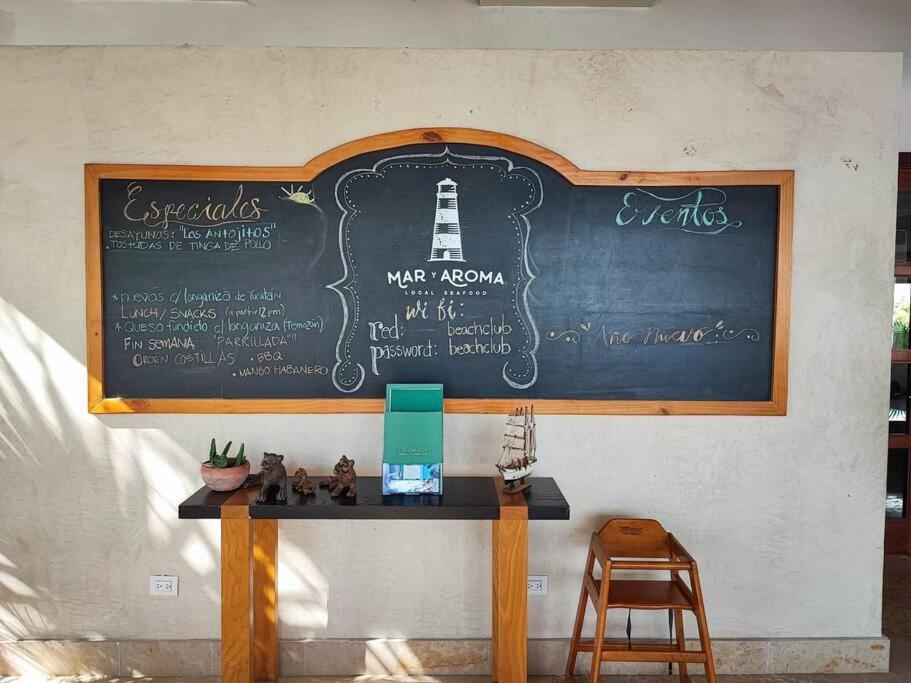 Especiales
DESAYUNOS: "Los ANTOJITOS"
. TOSTADAS DE TINGA DE POLLO
* huevos c/ longaniza de Yucatán
LUNCH / SNACKS (a partir 12 pm)
* QUESO fundido c/ longaniza (Temozón)
FIN SEMANA: "PARRILLADA"!!
ORDEN COSTILLAS . BBQ
. MANGO HABANERO
MAR Y AROMA
LOCAL SEAFOOD
wi fi:
red: beachclub
password: beachclub
Eventos
Año Nuevo
LA AMADA